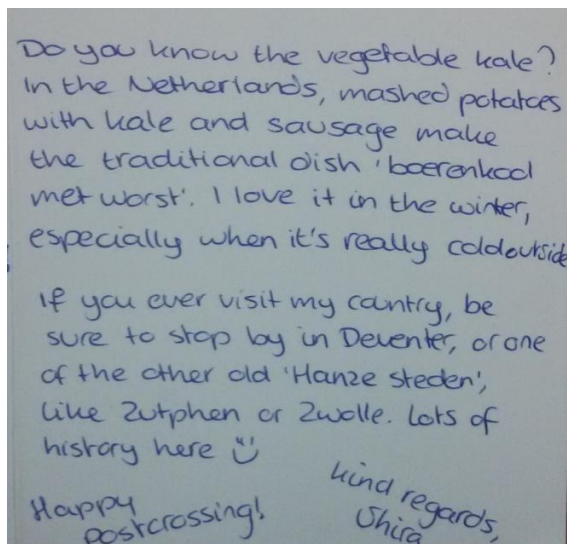 Do you know the vegetable kale?
In the Netherlands, mashed potatoes
with kale and sausage make
the traditional dish 'boerenkool
met worst'. I love it in the winter,
especially when it's really cold outside
If you ever visit my country, be
sure to stop by in Deventer, or one
of the other old 'Hanze steden',
like Zutphen or Zwolle. Lots of
history here
Happy
postcrossing!
kind regards,
Shira